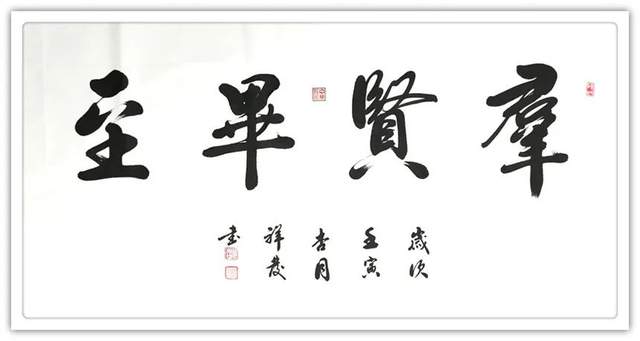 羣賢畢至
歲次
壬寅
杏月
祥發
書